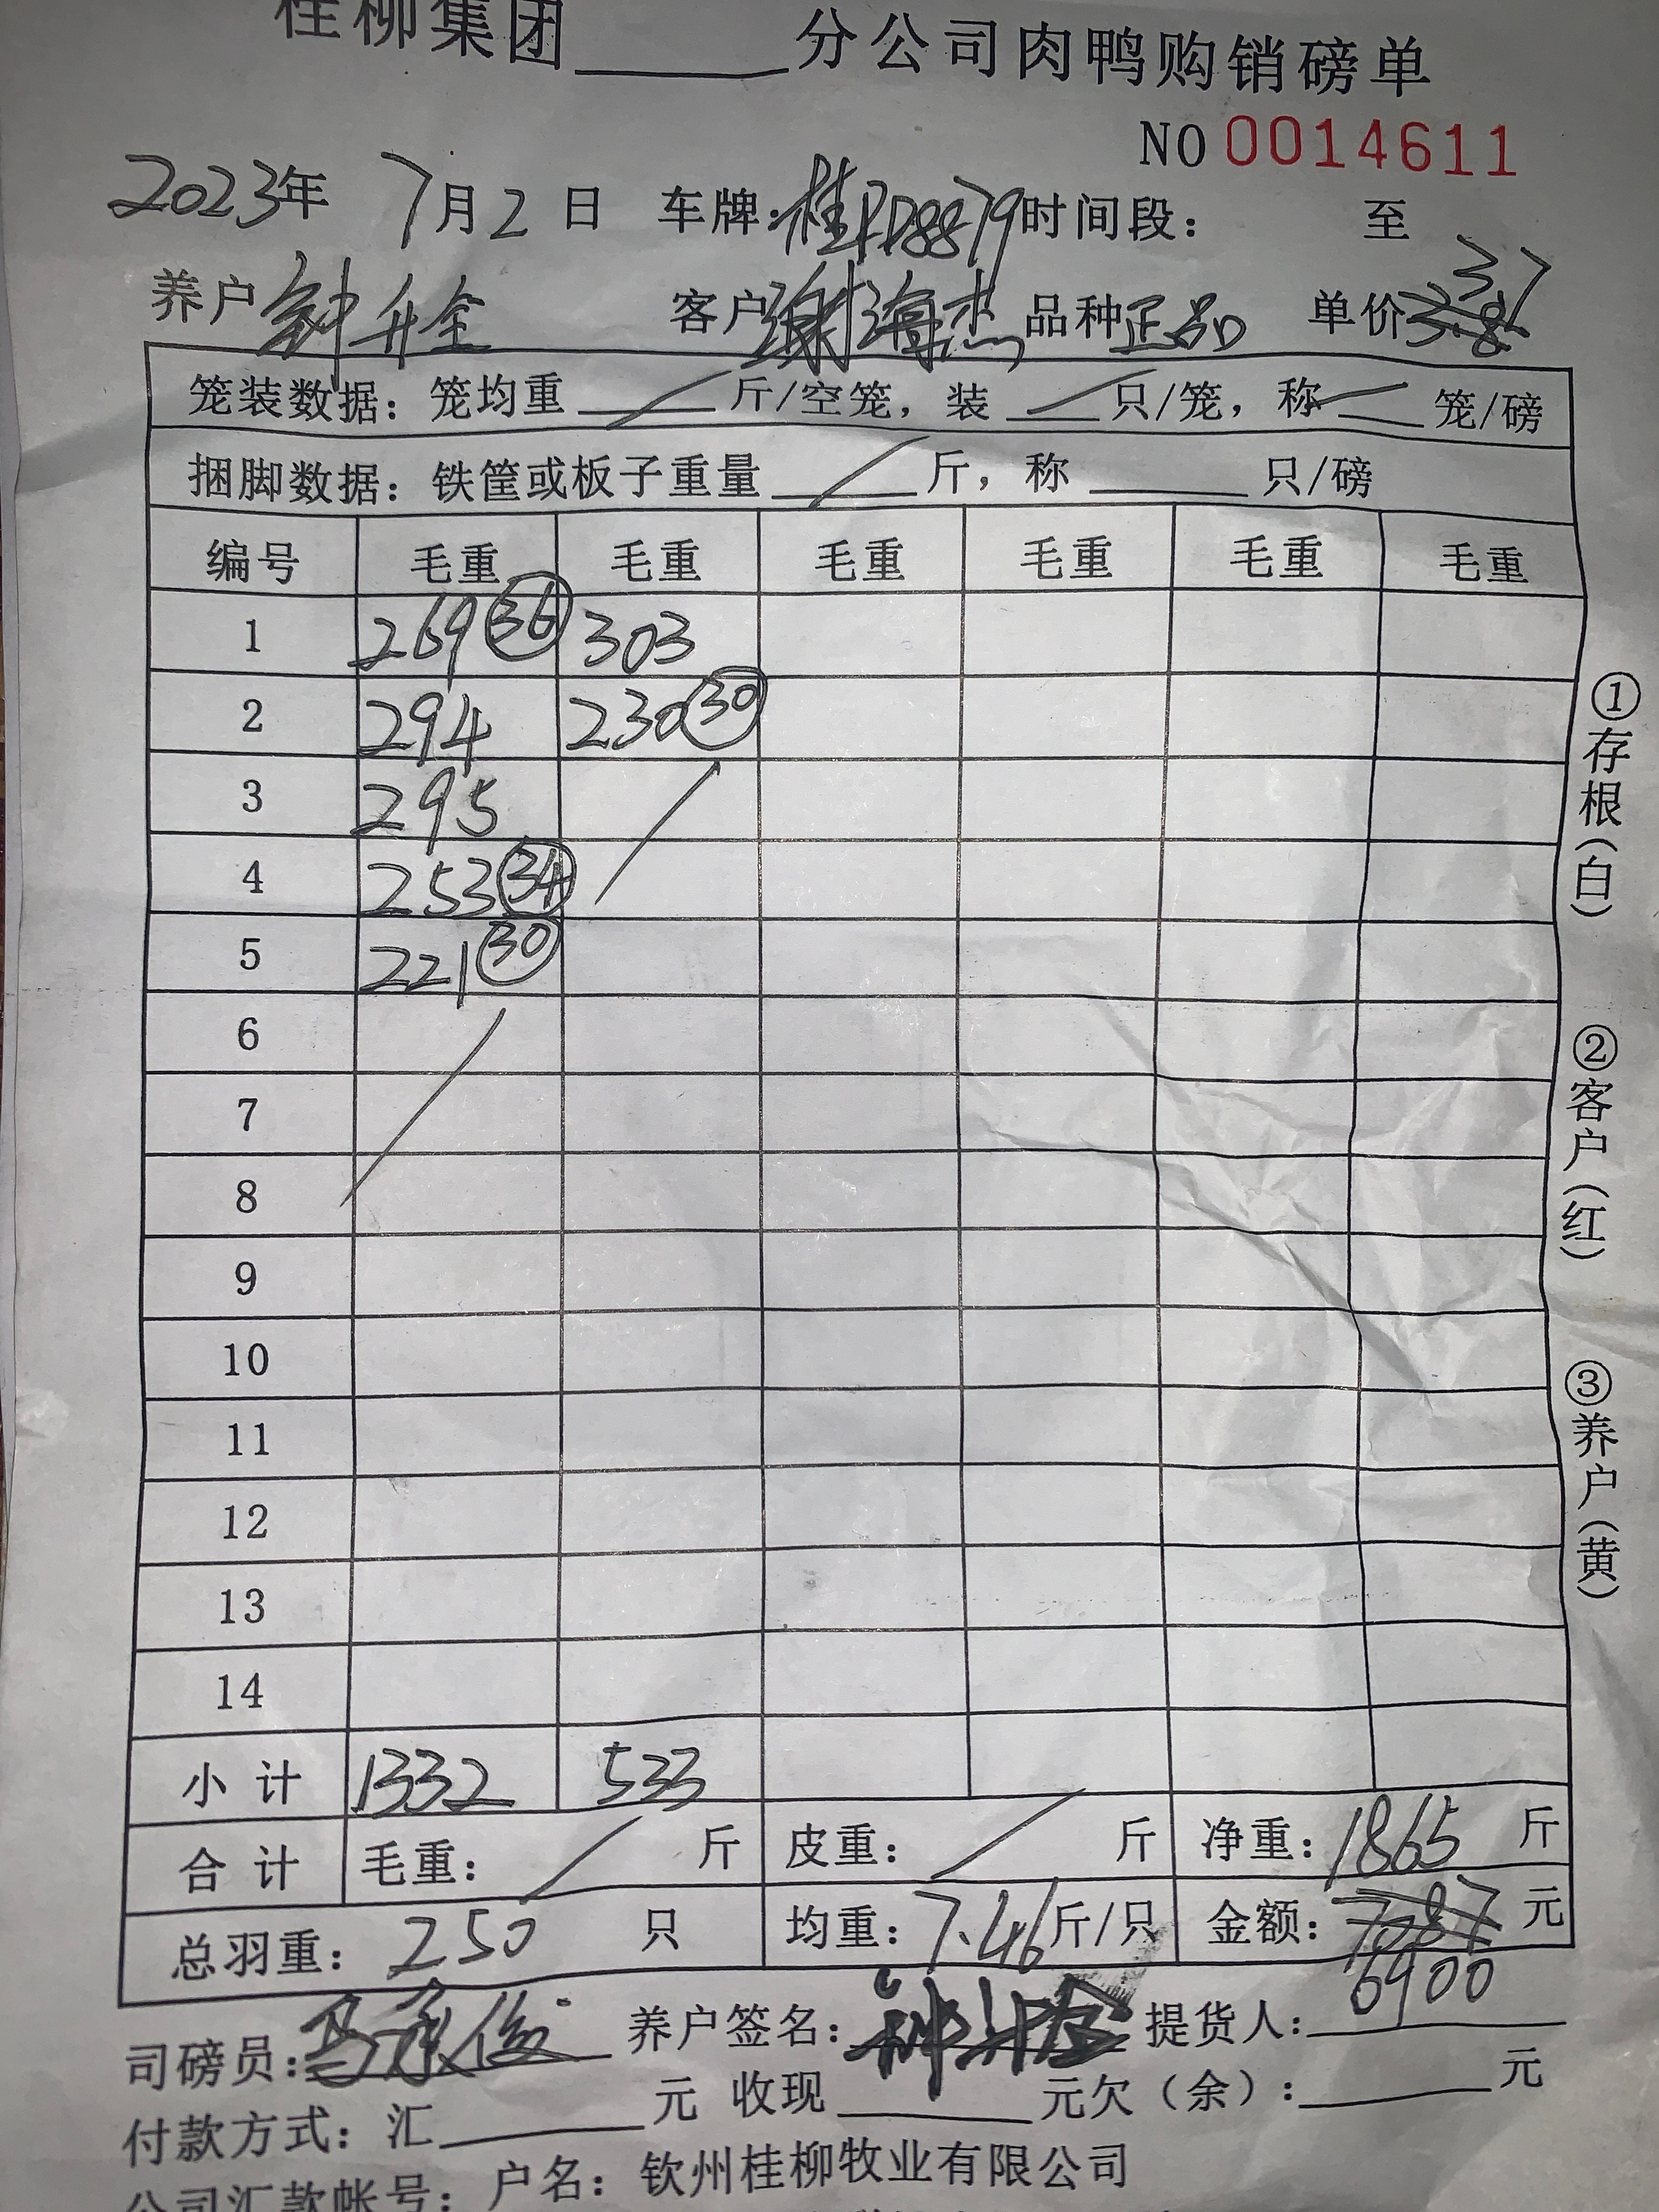 桂柳集团______分公司肉鸭购销磅单
NO 0014611
2023年 7月2日 车牌:桂PD8879 时间段: 至
37
养户 钟升全 客户 谢海杰 品种 正品 单价 3.8
笼装数据: 笼均重______斤/空笼, 装____只/笼, 称____笼/磅
捆脚数据: 铁筐或板子重量______斤, 称______只/磅
编号 毛重 毛重 毛重 毛重 毛重 毛重
1 269 36 303
2 294 230 30
3 295
4 253 34
5 221 30
6
7
8
9
10
11
12
13
14
小计 1332 533
合计 毛重: 斤 皮重: 斤 净重: 1865 斤
总羽重: 250 只 均重: 7.46 斤/只 金额: 7087 元
6900
司磅员: 马承俊 养户签名: 钟升全 提货人:
付款方式: 汇______元 收现______元欠(余):______元
公司汇款帐号: 户名: 钦州桂柳牧业有限公司
①存根(白)
②客户(红)
③养户(黄)